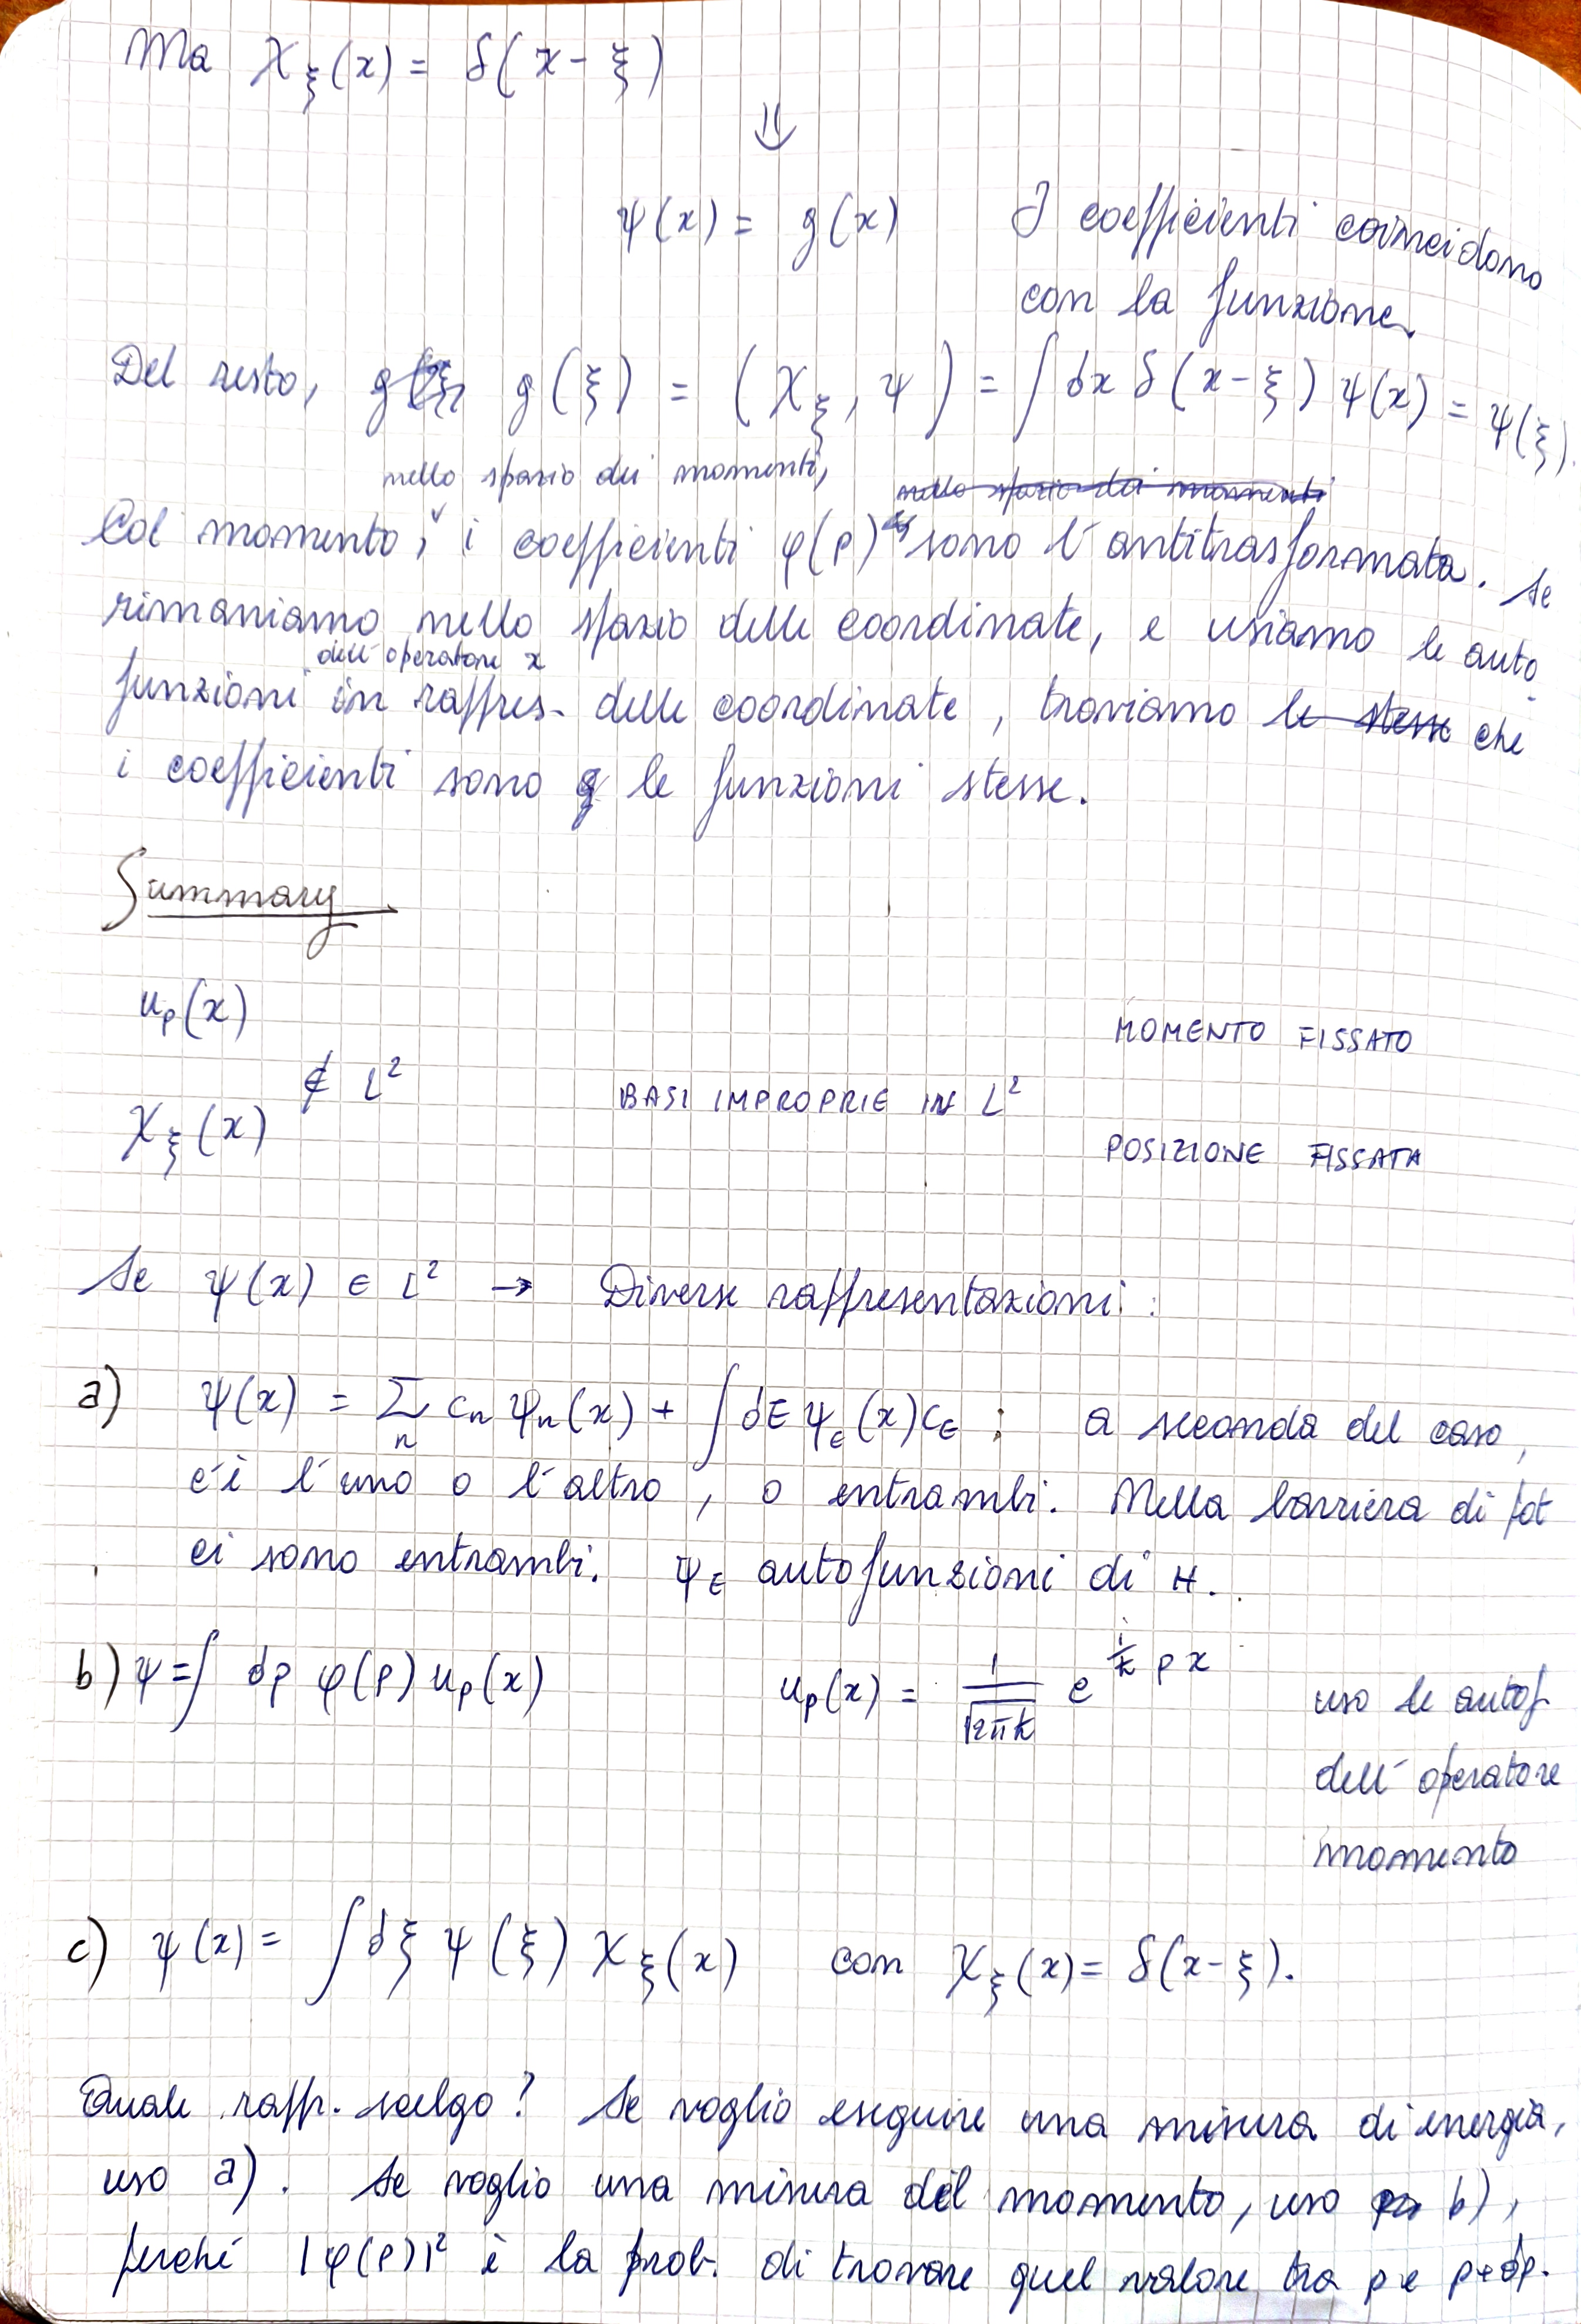 Ma χ_ξ(x) = δ(x-ξ)
⇓
ψ(x) = g(x) I coefficienti coincidono
con la funzione.
Del resto, g(ξ) = (χ_ξ, ψ) = ∫dx δ(x-ξ) ψ(x) = ψ(ξ).
nello spazio dei momenti, nello spazio dei momenti
Col momento, i coefficienti φ(p) sono l'antitrasformata. Se
rimaniamo nello spazio delle coordinate, e usiamo le auto-
dell'operatore x
funzioni in rappres. delle coordinate, troviamo le stesse che
i coefficienti sono le funzioni stesse.
Summary
u_p(x)
MOMENTO FISSATO
∉ L²
BASI IMPROPRIE IN L²
χ_ξ(x)
POSIZIONE FISSATA
Se ψ(x) ∈ L² → Diverse rappresentazioni:
a) ψ(x) = Σ_n c_n ψ_n(x) + ∫dE ψ_E(x) c_E ; a seconda del caso,
c'è l'uno o l'altro, o entrambi. Nella barriera di pot
ci sono entrambi. ψ_E autofunzioni di H.
b) ψ = ∫ dp φ(p) u_p(x) u_p(x) = 1/√(2πħ) e^{i/ħ px}
uso le autof
dell'operatore
momento
c) ψ(x) = ∫dξ ψ(ξ) χ_ξ(x) con χ_ξ(x) = δ(x-ξ).
Quale rappr. scelgo? Se voglio eseguire una misura di energia,
uso a). Se voglio una misura del momento, uso b),
perché |φ(p)|² è la prob. di trovare quel valore tra p e p+dp.